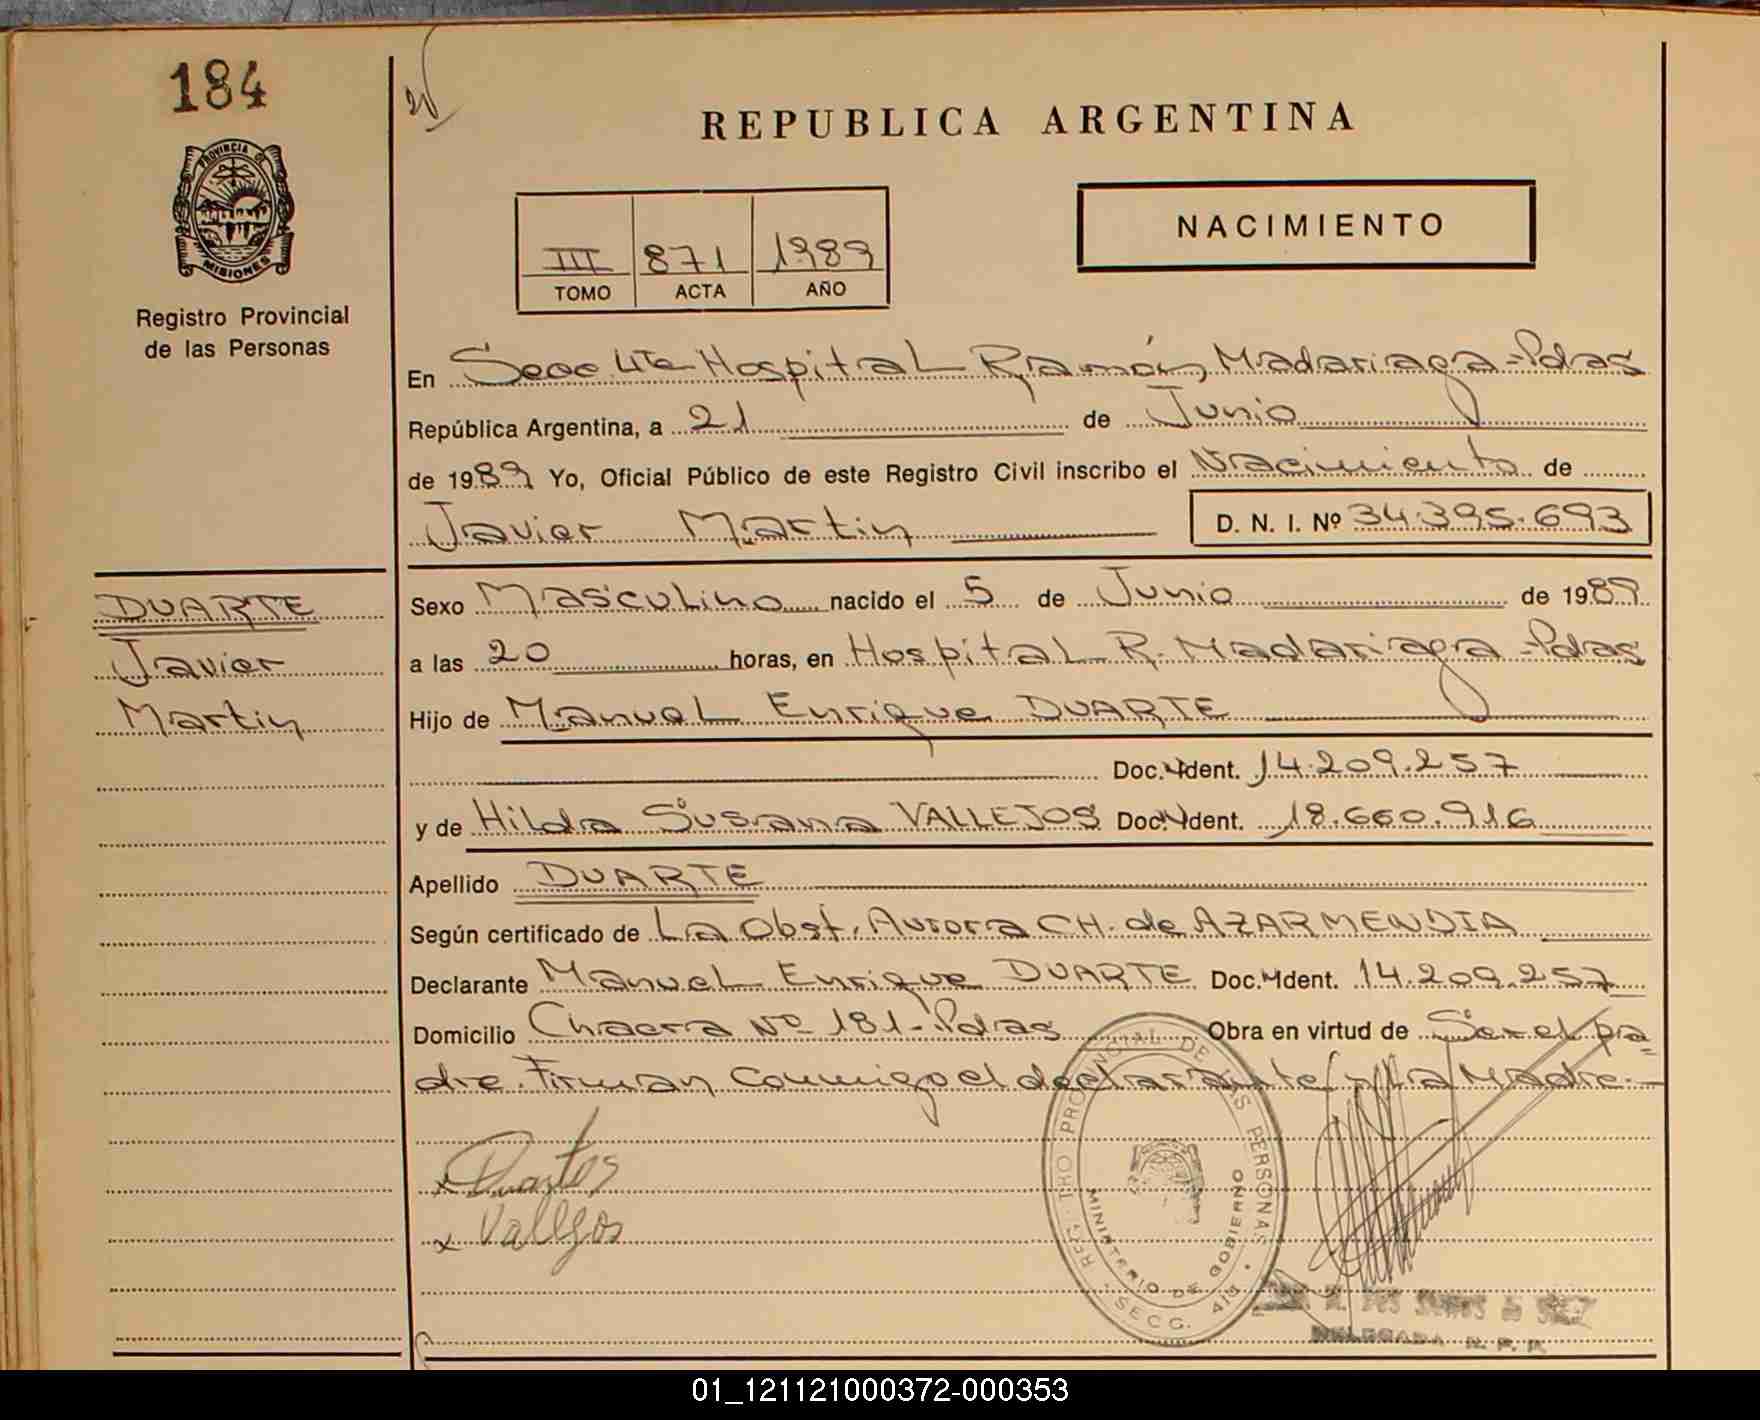 184
PROVINCIA DE
MISIONES
Registro Provincial
de las Personas
REPUBLICA ARGENTINA
NACIMIENTO
III 871 1989
TOMO ACTA AÑO
En Secc 4ta Hospital Ramón Madariaga - Pdas
República Argentina, a 21 de Junio
de 1989 Yo, Oficial Público de este Registro Civil inscribo el Nacimiento de
Javier Martin D. N. I. Nº 34.395.693
DUARTE
Javier
Martin
Sexo Masculino nacido el 5 de Junio de 1989
a las 20 horas, en Hospital R. Madariaga - Pdas
Hijo de Manuel Enrique DUARTE
Doc. Ident. 14.209.257
y de Hilda Susana VALLEJOS Doc. Ident. 18.660.916
Apellido DUARTE
Según certificado de La Obst. Aurora CH. de AZARMENDIA
Declarante Manuel Enrique DUARTE Doc. Ident. 14.209.257
Domicilio Chacra Nº 181 - Pdas Obra en virtud de Ser el pa=
dre. Firman Conmigo el declarante y La Madre.-
x Duartes
x Vallejos
REGISTRO PROVINCIAL DE LAS PERSONAS
MINISTERIO DE GOBIERNO
SECC. 4ta
DELEGADA R. P. P.
01_121121000372-000353